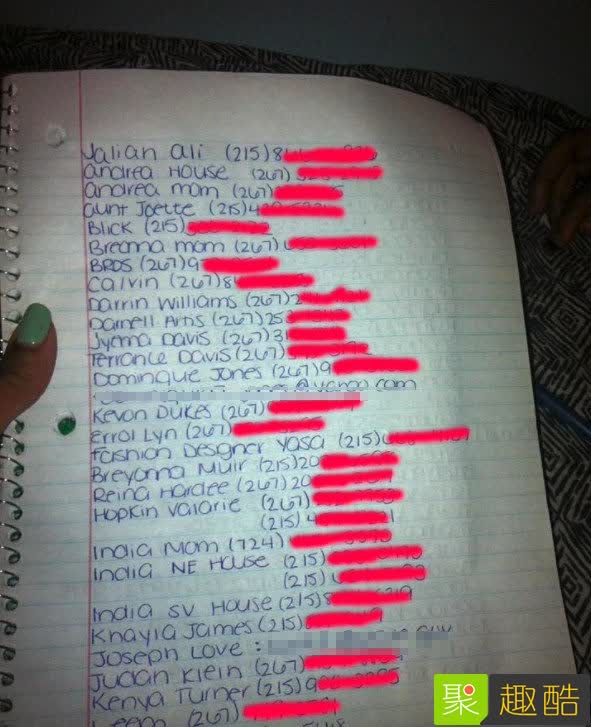 Jalian Ali (215)8
Andrea House (267)
Andrea mom (267)
Aunt Joette (215)4
Blick (215)
Breanna mom (267)
BROS (267)9
Calvin (267)8
Darrin Williams (267)2
Darnell Artis (267)25
Jyenna Davis (267)31
Terrance Davis (267)
Dominique Jones (267)9
@yahoo.com
Kevon Dukes (267)
Errol Lyn (267)
Fashion Designer Yasa (215)
Breyonna Muir (215)20
Reina Hardee (267)20
Hopkin Valarie (267)
(215)4
India Mom (724)
India NE House (215)
(215)
India SV House (215)8
Khayla James (215)
Joseph Love :
Judan Klein (267)
Kenya Turner (215)9
(267)
聚 趣酷